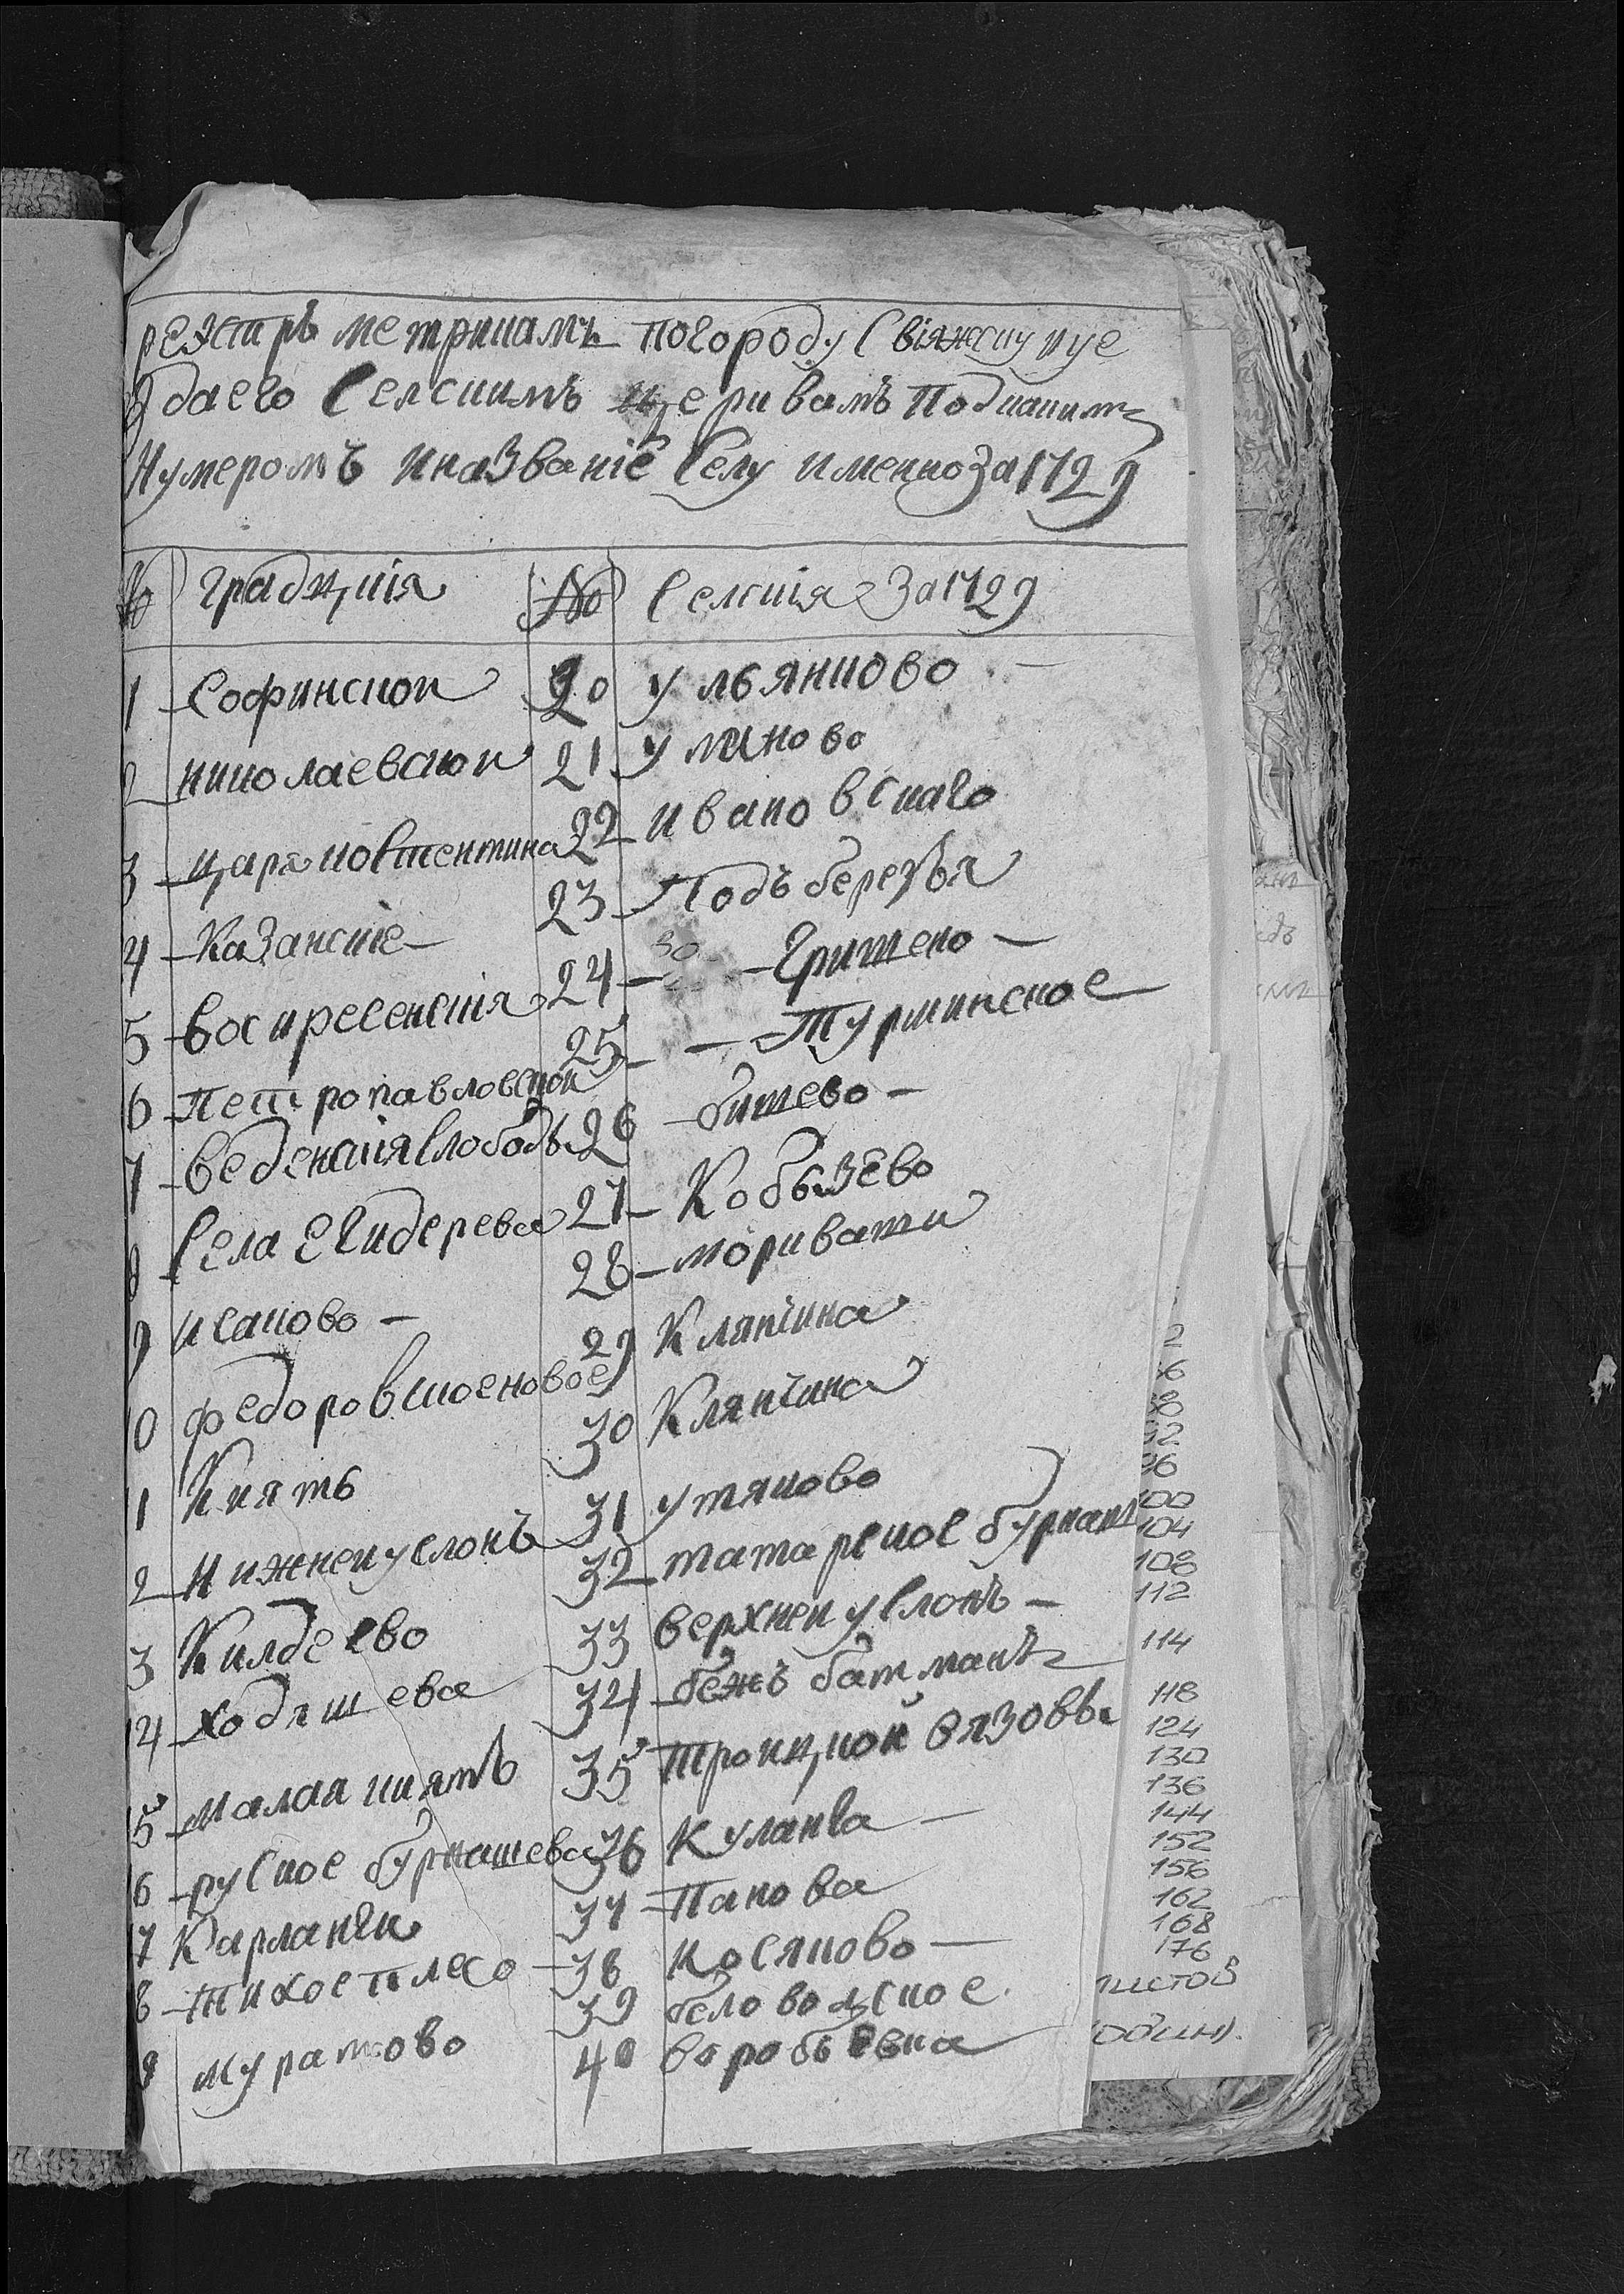 реэстръ метрикамъ погороду Свіяжску иуе
здаего Селскимъ церквамъ Подкакимъ
Нумеромъ иназваніе Селу именно За1729
№ Градцкія № Селскія За1729
1 Софииской 20 ульянково
2 николаевской 21 уланово
3 царяковстентина 22 ивановскаго
4 Казанскіе 23 Подъберезья
5 воскресенскія 24 Гришено
6 Петропавловской 25 Туршинское
7 веденскія Слободы 26 бишево
8 Села Егидерева 27 Кобызево
9 исаково 28 Морикваши
0 федоровское новое 29 Клянчина
1 Киять 30 Клянчина
2 нижней услонъ 31 утяково
3 Килдеево 32 татарское бурнаш
14 ходяшева 33 верхней услонъ
5 малая киять 34 бежъ батманъ
6 руское бурнашева 35 Троицкой вязовы
7 Карлангя 36 Куланга
8 тихое плесо 37 Панова
9 муратово 38 косяково
39 беловолское
40 воробьевка
100
104
108
112
114
118
124
130
136
144
152
156
162
168
176
листов
(один).